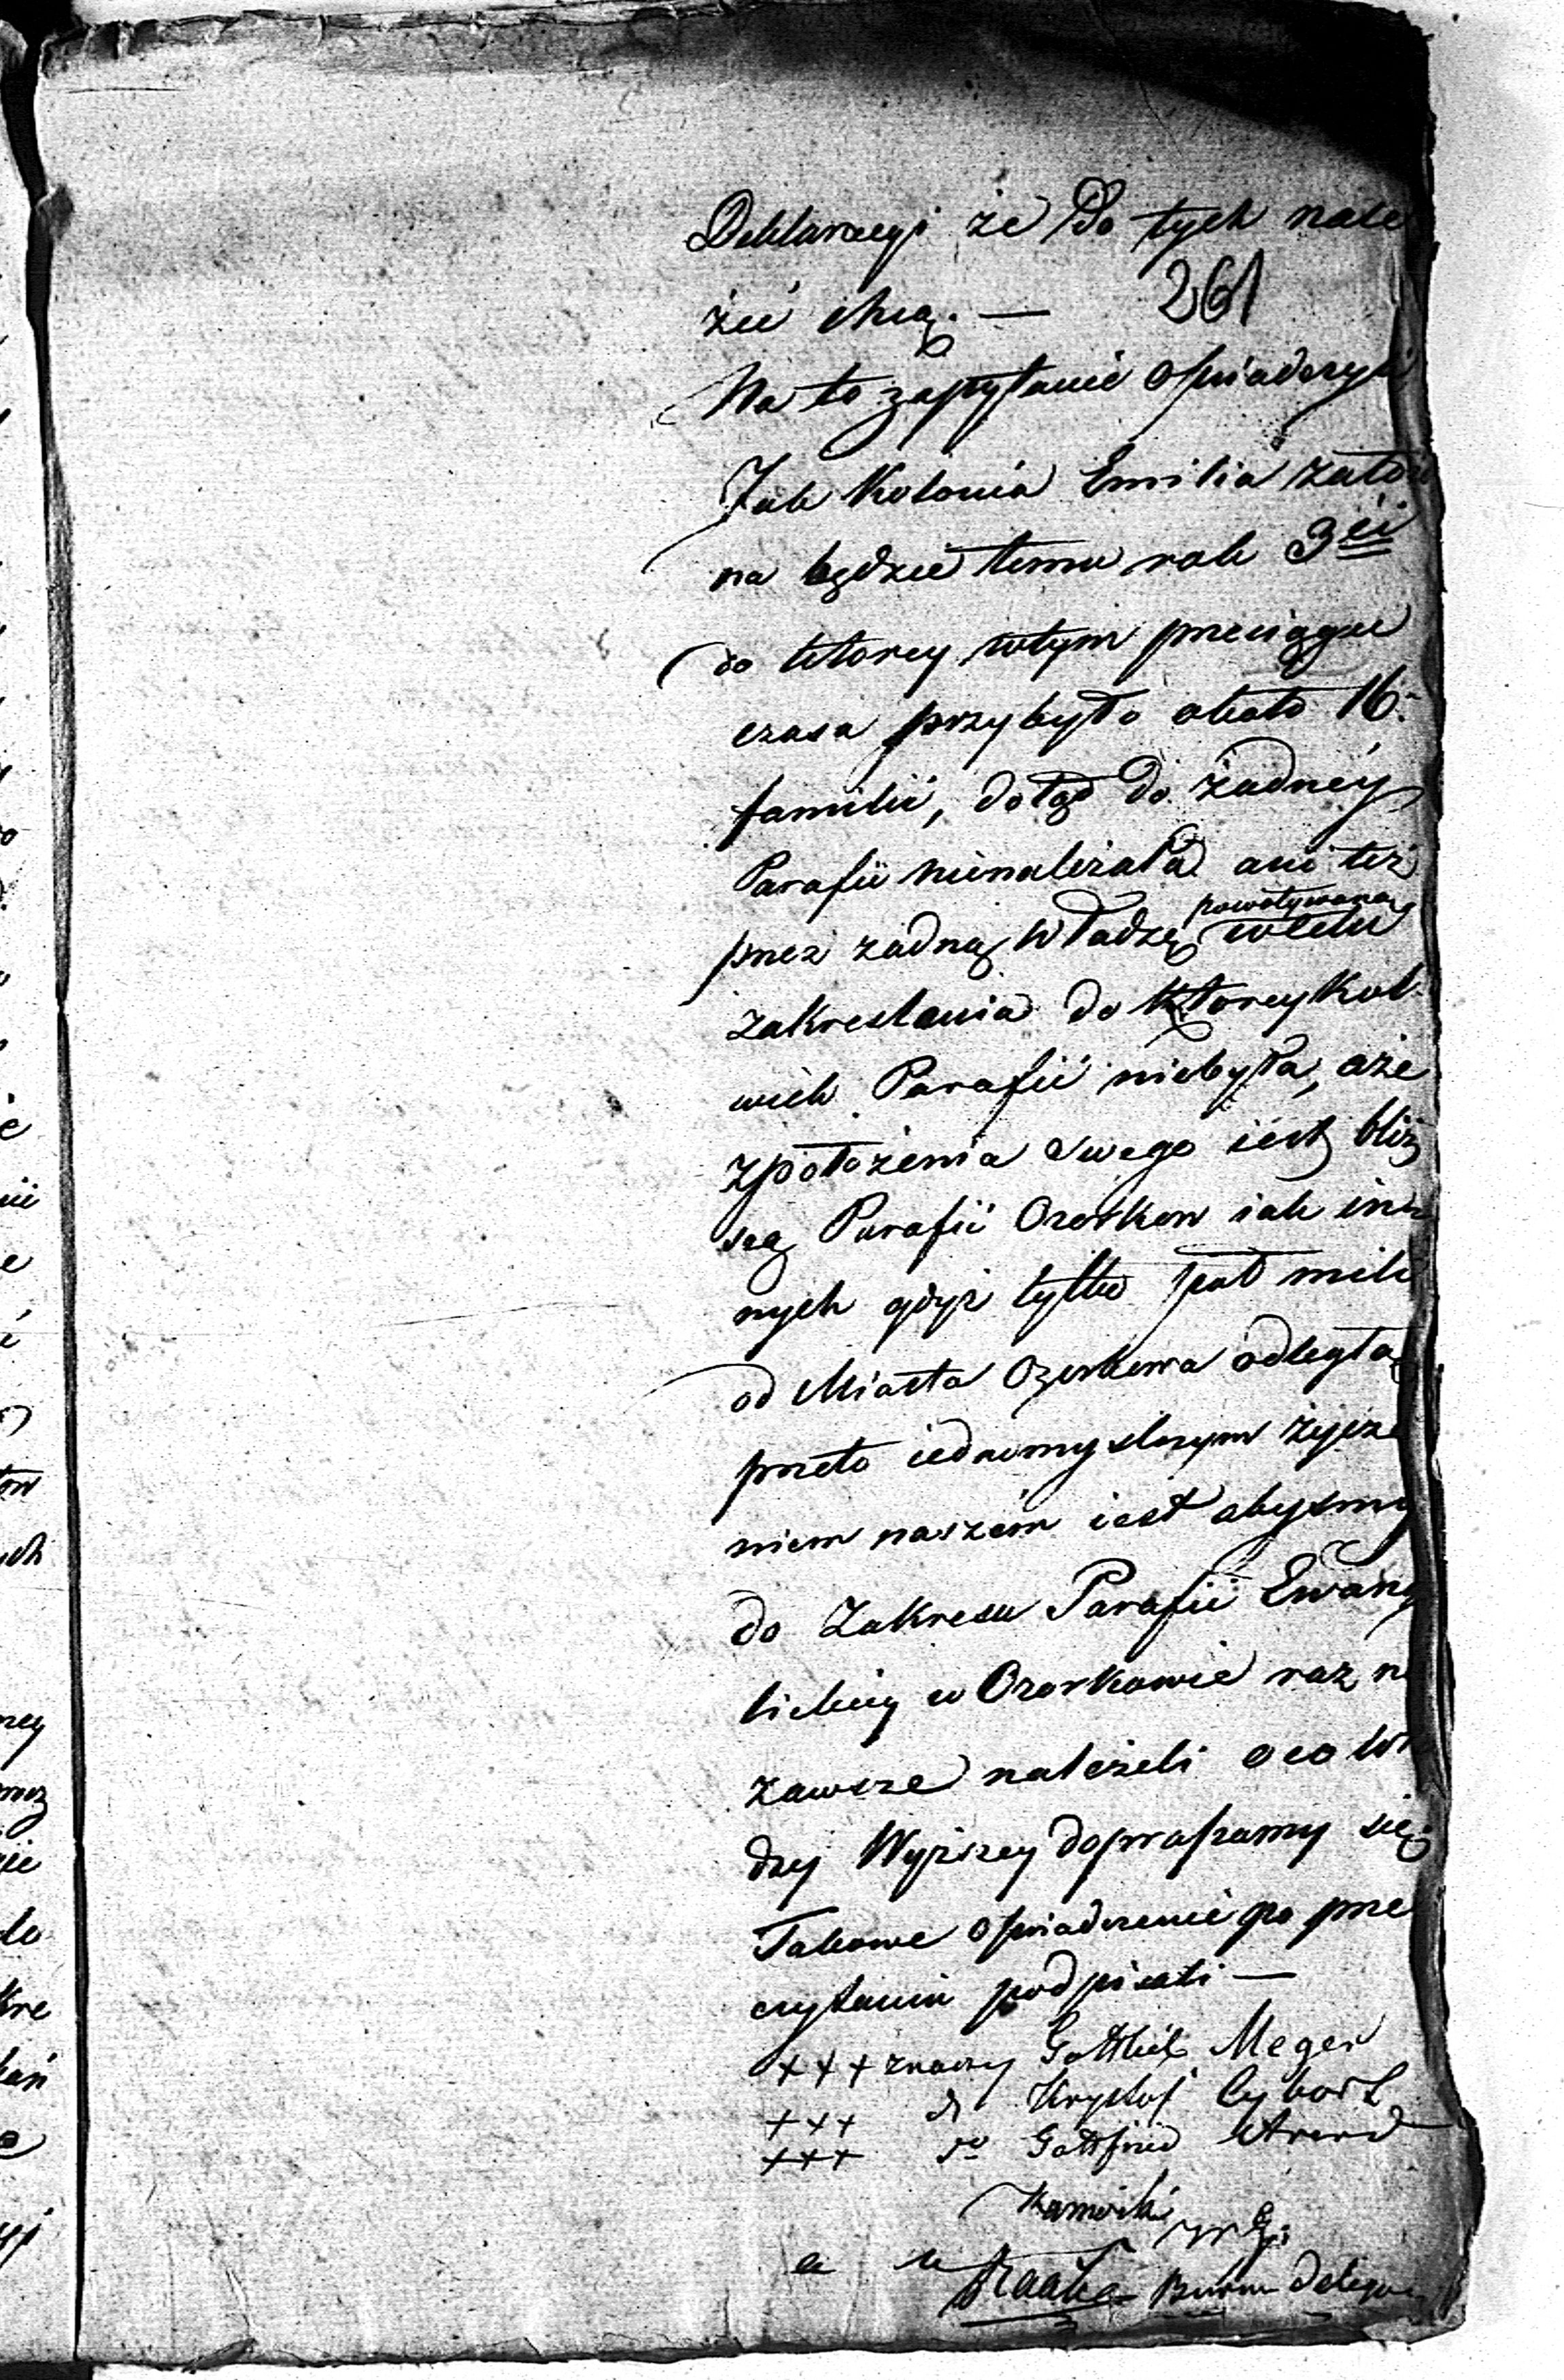 Deklaracyi że Do tych nale
261
żeć chcą. —
Na to zapytanie oświadczyli
Jak Kolonia Emilia zało
na będzie temu rok 3ci
do ktorey wtym przeciągu
czasu przybyło około 16.
familii, dotąd do żadney
Parafii nienależała ani też
powoływana
przez żadną Władzę w celu
zakreslania do ktoreykol
wiek Parafii niebyła, aże
zpołożenia swego iest bliz
szą Parafii Ozorkow iak in
nych gdyż tylko pół mili
od Miasta Ozorkowa odległa
przeto iednomyslnym życze
niem naszém iest abysmy
do Zakresu Parafii Ewang
lickiey w Ozorkowie raz n
zawsze należeli oco Wł
dzy Wyższey dopraszamy się.
Takowe oświadczenie po prze
czytaniu podpisali —
+++ znaczy Gottlieb Meger
+++ do Krysztof Cybart
+++ do Gottfried
Burm Delego